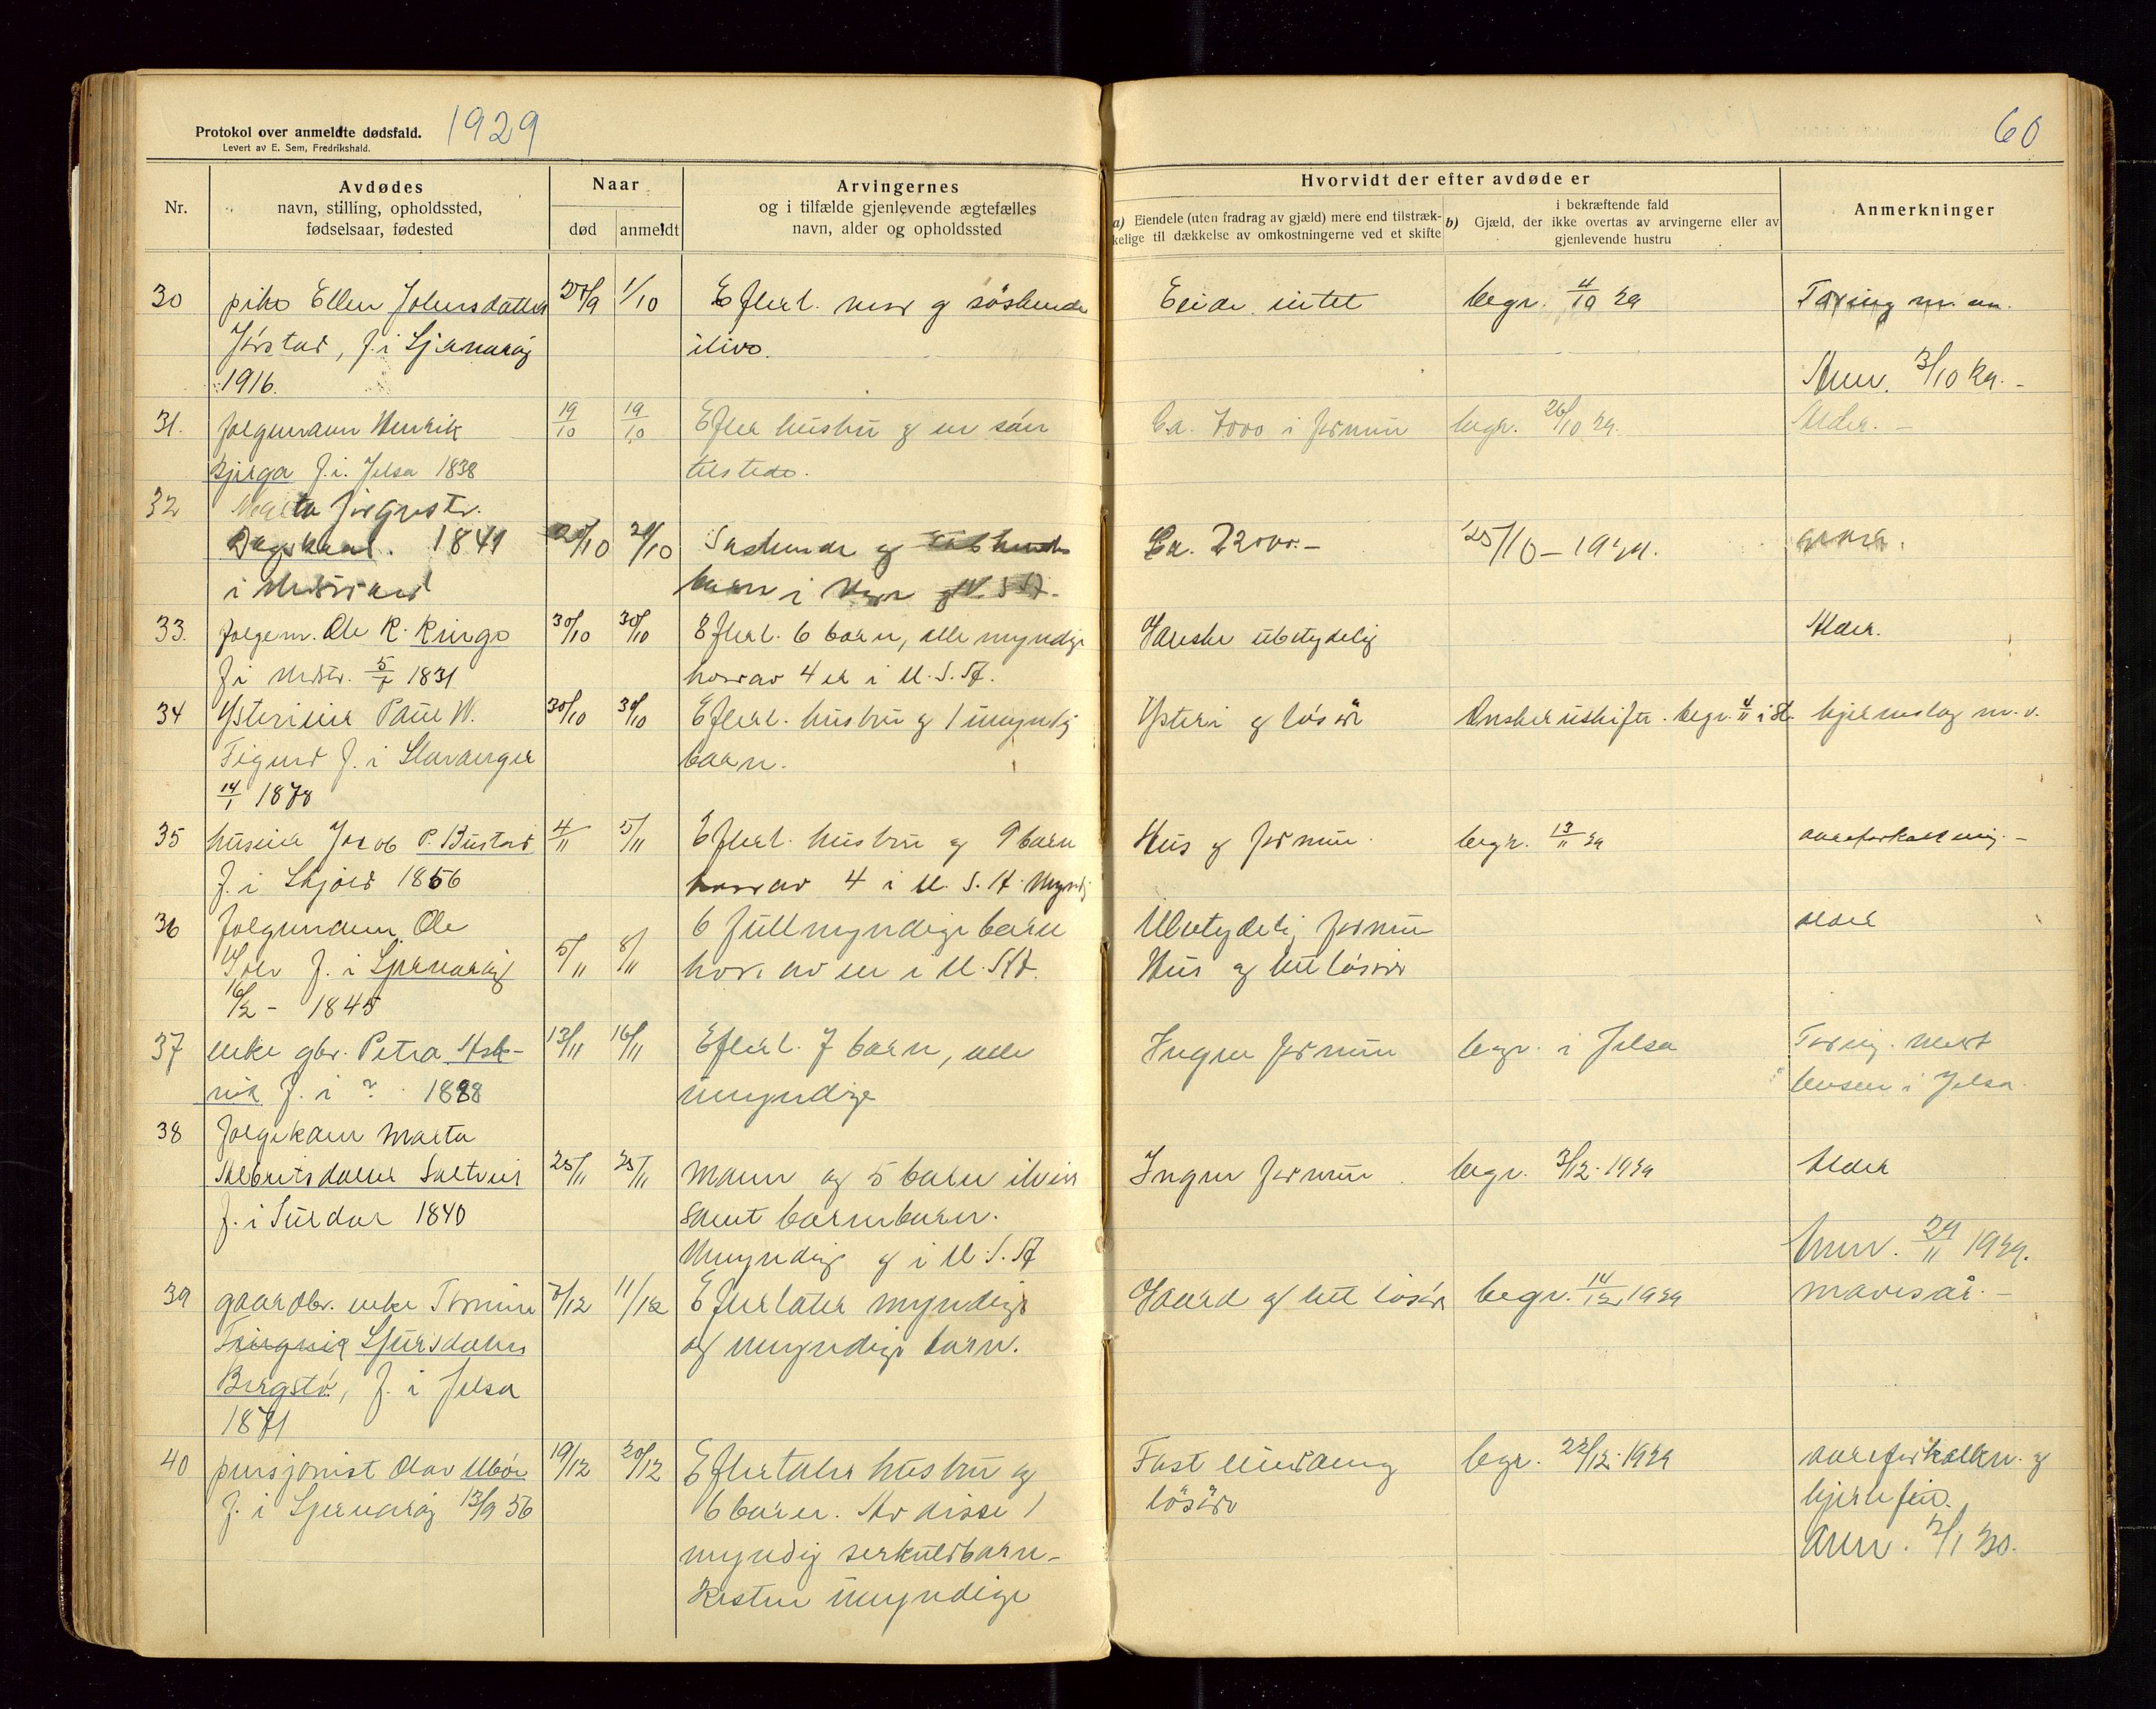 Protokol over anmeldte dødsfald. 1929
Levert av E. Sem, Fredrikshald.
60
Nr.
Avdødes
navn, stilling, opholdssted,
fødselsaar, fødested
Naar
død anmeldt
Arvingernes
og i tilfælde gjenlevende ægtefælles
navn, alder og opholdssted
Hvorvidt der efter avdøde er
a) Eiendele (uten fradrag av gjæld) mere end tilstræk-
kelige til dækkelse av omkostningerne ved et skifte
i bekræftende fald
b) Gjæld, der ikke overtas av arvingerne eller av
gjenlevende hustru
Anmerkninger
30 pike Ellen 27/9 1/10 Efterl. mor og söskende Eide intet begr. 4/10 29 Tæring m. m.
f. i Sjernaröy ilive.
1916. Ann. 3/10 29. -
31. folgemann Henrik 19/10 19/10 Efter hustru og en sön Ca. 7000 i formue begr. 26/10 29. Alder. -
Bjerga f. i. Jelsa 1838 tilstede.
32 1841 29/10 og Ca. 22000.- 25/10 - 1929.
i Nedstrand barn i
33. folgem. Ole K. Ringe 30/10 30/10 Efterl. 6 barn, alle myndige Ganske ubetydelig Alder.
f i Nedstr. 1831 hvorav 4 er i U. S. A.
34 Ysterieier Paul W. 30/10 30/10 Efterl. hustru og 1 umyndig Ysteri og lösöre Ønsker uskifte. begr. 4/11 i St. hjerneslag m. v.
f. i Stavanger barn.
14/1 1878
35 huseier Jacob P. Bustad 4/11 5/11 Efterl. hustru og 9 barn Hus og formue. begr. 13/11 29 aareforkalkning. -
f. i Skjold 1856 hvorav 4 i U. S. A. Myndig
36 folgemann Ole 6 fullmyndige barn Ubetydelig formue alder
f. i Sjernaröy 5/11 8/11 hvorav en i U.S.A. Hus og litt lösöre
16/2 - 1845
37 enke gbr. Petra Ask- 13/11 16/11 Efterl. 7 barn, alle Ingen formue begr. i Jelsa Tæring.
vik f. i ? 1888 umyndige i Jelsa.
38 folgekone Marta
Albertsdatter Saltvik 25/11 25/11 Mann og 5 barn ilive Ingen formue begr. 3/12. 1929 Alder
f. i Suldal 1840 samt barnebarn.
Umyndig og i U.S.A. Ann. 29/11 1929.
39 gaardbr. enke 7/12 11/12 Efterlater myndige Gaard og litt lösöre begr. 14/12 1929 mavesår. -
Sjursdatter og umyndige barn.
Bergstö, f. i Jelsa
1871
40 pensjonist Olav Ubøe 19/12 20/12 Efterlater hustru og Fast eiendom og begr. 22/12. 1929 aareforkalkn. og
f. i Sjernaröy 13/9 56 6 barn. Av disse 1 lösöre hjertefeil.
myndig særkuldbarn - Ann. 2/1 30.
Resten umyndige